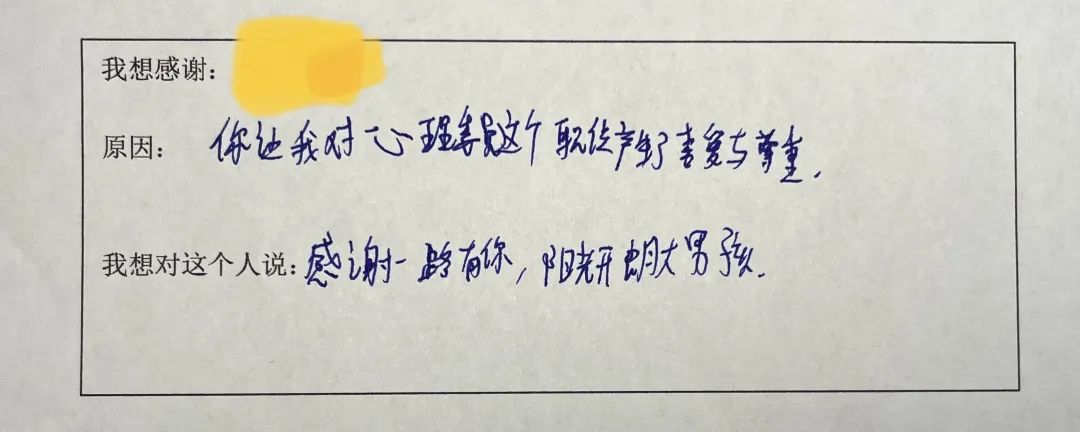 我想感谢：
原因： 你让我对心理委员这个职位产生了喜爱与尊重.
我想对这个人说：感谢一路有你，阳光开朗大男孩.